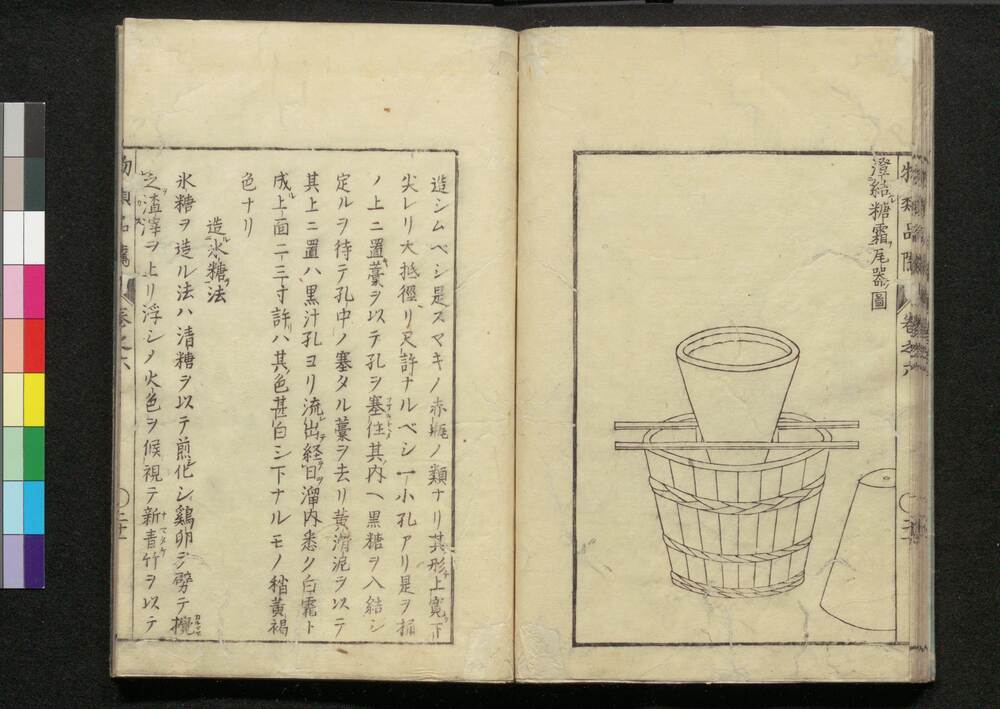 澄結糖霜瓦器圖
物類品隲
卷之六
造シムベシ是スマキノ赤瓶ノ類ナリ其形上寛下
尖レリ大抵徑リ尺許ナルベシ一小孔アリ是ヲ桶
ノ上ニ置藁ヲ以テ孔ヲ塞住其内ヘ黒糖ヲ入結シ
定ルヲ待テ孔中ノ塞タル藁ヲ去リ黄滑泥ヲ以テ
其上ニ置ハ黒汁孔ヨリ流出経日溜内悉ク白霜ト
成上面二三寸許ハ其色甚白シ下ナルモノ稍黄褐
色ナリ
造氷糖法
氷糖ヲ造ル法ハ清糖ヲ以テ煎化シ鷄卵ヲ劈テ攪
之渣滓ヲ上リ浮シメ火色ヲ候視テ新青竹ヲ以テ
物類品隲
卷之六